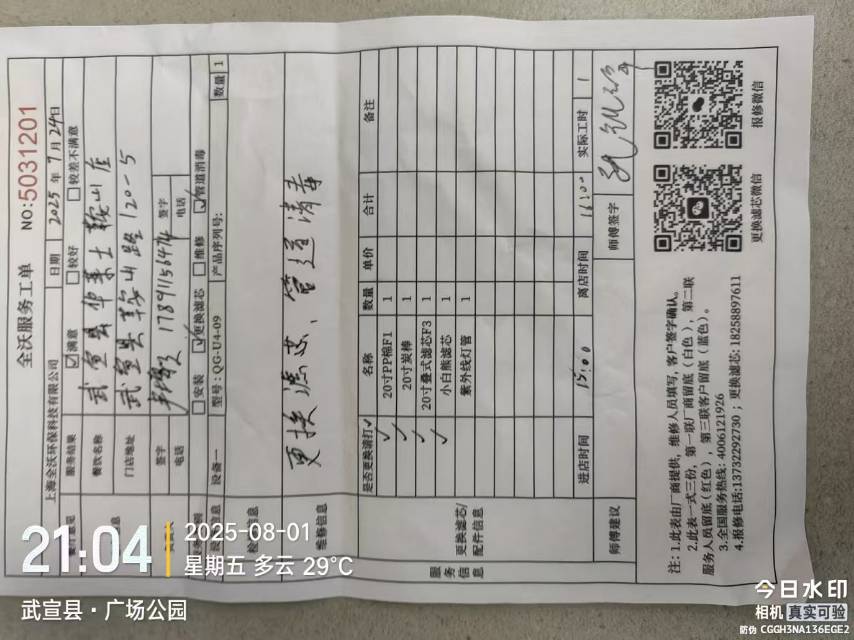 全沃服务工单
NO:5031201
上海全沃环保科技有限公司 日期 2025年7月29日
服务结果 ☑满意 □较好 □较差不满意
餐饮名称 武宣县华莱士鞍山店
门店地址 武宣县鞍山路120-5
签字 签字
电话 17891156474 电话
□安装 ☑更换滤芯 □维修 ☑管道消毒
设备一 型号:QG-U4-09 产品序列号: 数量 1
维修信息 更换滤芯、管道消毒
服务信息
更换滤芯/配件信息
是否更换请打✓ 名称 数量 单价 合计 备注
✓ 20寸PP棉F1 1
✓ 20寸炭棒 1
✓ 20寸叠式滤芯F3 1
✓ 小白熊滤芯 1
紫外线灯管 1
进店时间 15:00 离店时间 16:00 实际工时 1
师傅建议 师傅签字
注: 1.此表由厂商提供，维修人员填写，客户签字确认。
2.此表一式三份，第一联厂商留底（白色），第二联
服务人员留底(红色)，第三联客户留底（蓝色）。
3.全国服务热线: 4006121926
4.报修电话:13732292730；更换滤芯: 18258897611
更换滤芯微信 报修微信
21:04
2025-08-01
星期五 多云 29°C
武宣县·广场公园
今日水印
相机 真实可验
防伪 CGGH3NA136EGE2